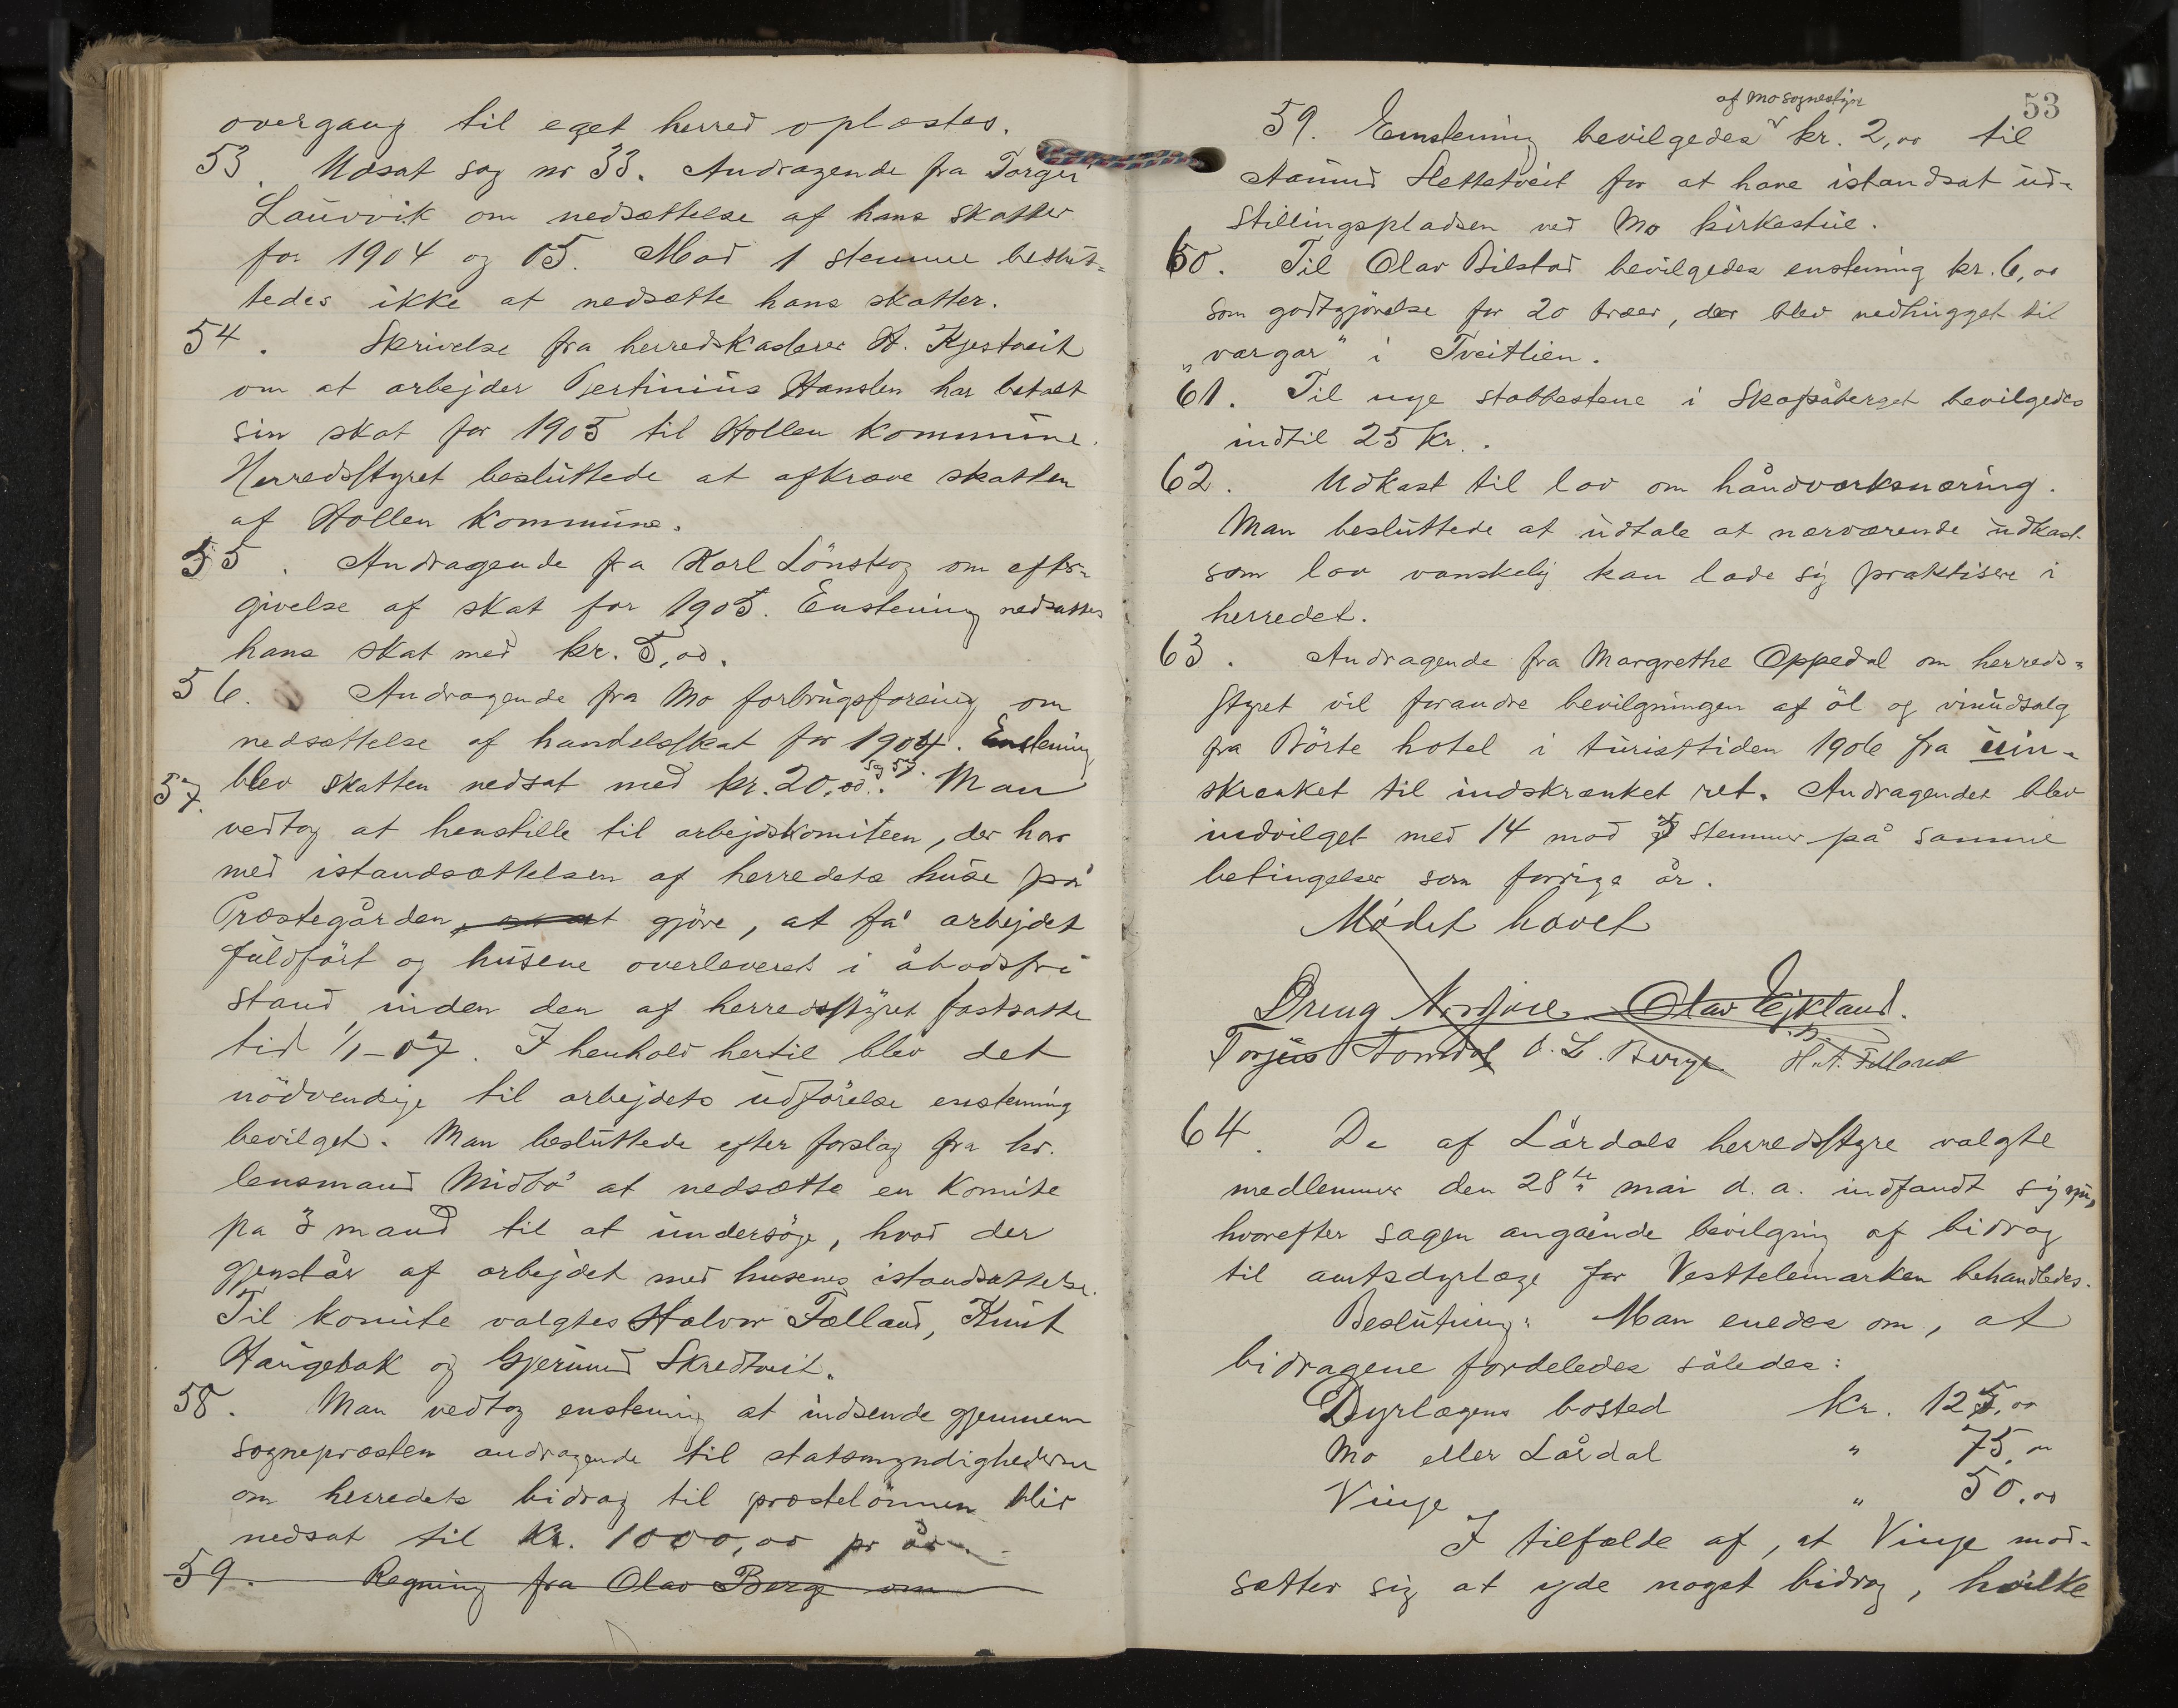 overgang til eget herred oplæstes.
53. Udsat sag nr 33. Andragende fra Torgei
Lauvvik om nedsættelse af hans skatter
for 1904 og 05. Mod 1 stemme beslut-
tedes ikke at nedsætte hans skatter.
54. Skrivelse fra herredskasserer H. Kjestveit
om at arbejder Gjertinius Hanslen har betalt
sin skat for 1905 til Hollen kommune.
Herredsstyret besluttede at afkræve skatten
af Hollen kommune.
55. Andragende fra Karl Lönskog om efter-
givelse af skat for 1905. Enstemig nedsattes
hans skat med kr. 5,00.
56. Andragende fra Mo forbrugsforening om
nedsættelse af handelsskat for 1904. Enstemig
blev skatten nedsat med kr. 20,00. Sag 57. Man
57.
vedtog at henstille til arbejdskomiteen, der har
med istandsættelsen af herredets huse på
Præstegården, at gjöre, at få arbejdet
fuldfört og husene overleveret i åbodsfri
stand inden den af herredsstyret fastsatte
tid 1/1-07. I henhold hertil blev det
nödvendige til arbejdets udförelse enstemig
bevilget. Man besluttede efter forslag fra hr.
lensmand Midbö at nedsætte en komite
pa 3 mand til at undersöge, hvad der
gjenstår af arbejdet med husenes istandsættelse.
Til komite valgtes Halvor Fælland, Knut
Haugebak og Gjermund Skredtveit.
58. Man vedtog enstemig at indsende gjennem
sognepræsten andragende til statsmyndighederne
om herredets bidrag til præstelönnen blir
nedsat til Kr. 1000,00 pr år.
59. Regning fra Olav Berg om
53
af Mo sognestyre
59. Enstemig bevilgedes kr. 2,00 til
Aamund Slettetveit for at have istandsat ud-
stillingspladsen ved Mo kirkestue.
60. Til Olav Bilstad bevilgedes enstemig kr. 6,00
som godtgjörelse for 20 træer, der blev nedhugget til
"vargar" i Tveitlien.
61. Til nye stabbestene i Skapåberget bevilgedes
indtil 25 kr.
62. Udkast til lov om håndværksnæring.
Man besluttede at udtale at nærværende udkast
som lov vanskelig kan lade sig praktisere i
herredet.
63. Andragende fra Margrethe Oppedal om herreds-
styret vil forandre bevilgningen af öl og vinudsalg
fra Börte hotel i turisttiden 1906 fra uin-
skrænket til indskrænket ret. Andragendet blev
indvilget med 14 mod 5 stemmer på samme
betingelser som forrige år.
Mödet hævet
Dreng Olav Eikland.
Torjus O. L. Berge H. A. Felland
64. De af Lårdals herredsstyre valgte
medlemmer den 28de mai d. a. indfandt sig nu,
hvorefter sagen angående bevilgning af bidrag
til amtsdyrlæge for Vesttelemarken behandledes.
Beslutning: Man enedes om, at
bidragene fordeledes således:
Dyrlægens bosted kr. 125,00
Mo eller Lårdal " 75,00
Vinje " 50,00
I tilfælde af, at Vinje mod-
sætter sig at yde noget bidrag, hvilke